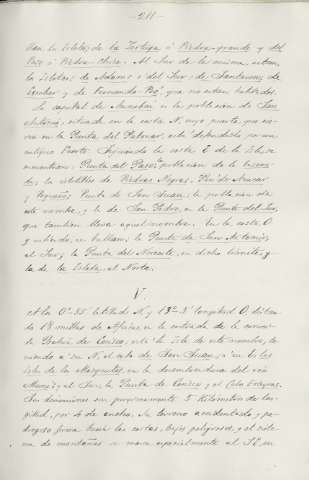 - 211 -
van los islotes de la Tortuga ó Piedra-grande y del
Paso ó Piedra-chica. Al Sur de la misma, estan
los islotes de Adams ó del Sur; de Santarem de
Escobar y de Fernando-Póo, que no estan habitados.
La capital de Annobon es la poblacion de San
Antonio, situada en la costa N, cuyo puerto, que es-
en la Punta del Palmar, está defendido por un
antiguo Fuerte. Siguiendo la costa E de la isla se
encuentran; Punta del Paso; la poblacion de la
los islotillos de Piedras Negras, Pan de Azucar
y Punta de San Juan; la poblacion de
este nombre, y la de San Pedro, en la Punta del Sur,
que tambien lleva aquel nombre. En la costa O
y subiendo, se hallan; la Punta de San Antonio,
al Sur; la Punta del Noroeste, en dicho viento, y
la de la Isleta, al Norte.
V.
A los 0° 55' latitud N y 13° 2' longitud O, distan-
te 18 millas de Africa, en la entrada de la
Bahia de Corisco, está la isla de este nombre, te-
niendo á su N, el cabo de San Juan; á su E, los
islotes de los Mosquitos, en la desembocadura del rio
Muni; y al Sur, la Punta de Corisco y el Cabo Esteyras.
Sus dimensiones son proximamente 5 kilómetros de lon-
gitud, por 4 de ancho. Su terreno accidentado y pe-
dregoso forma hacia las costas, bajos peligrosos, y el siste-
ma de montañas se marca especialmente al SE, en